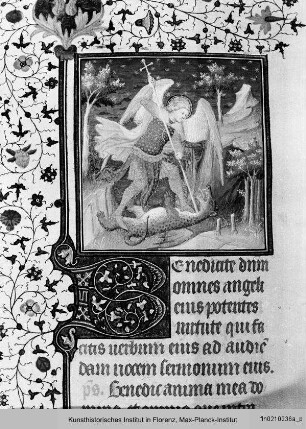 Benedicite dnm
omnes angeli
eius potentes
uirtute qui fa
citis uerbum eius ad audiē
dam uocem sermonum eius.
ps. Benedic anima mea do
Kunsthistorisches Institut in Florenz, Max-Planck-Institut